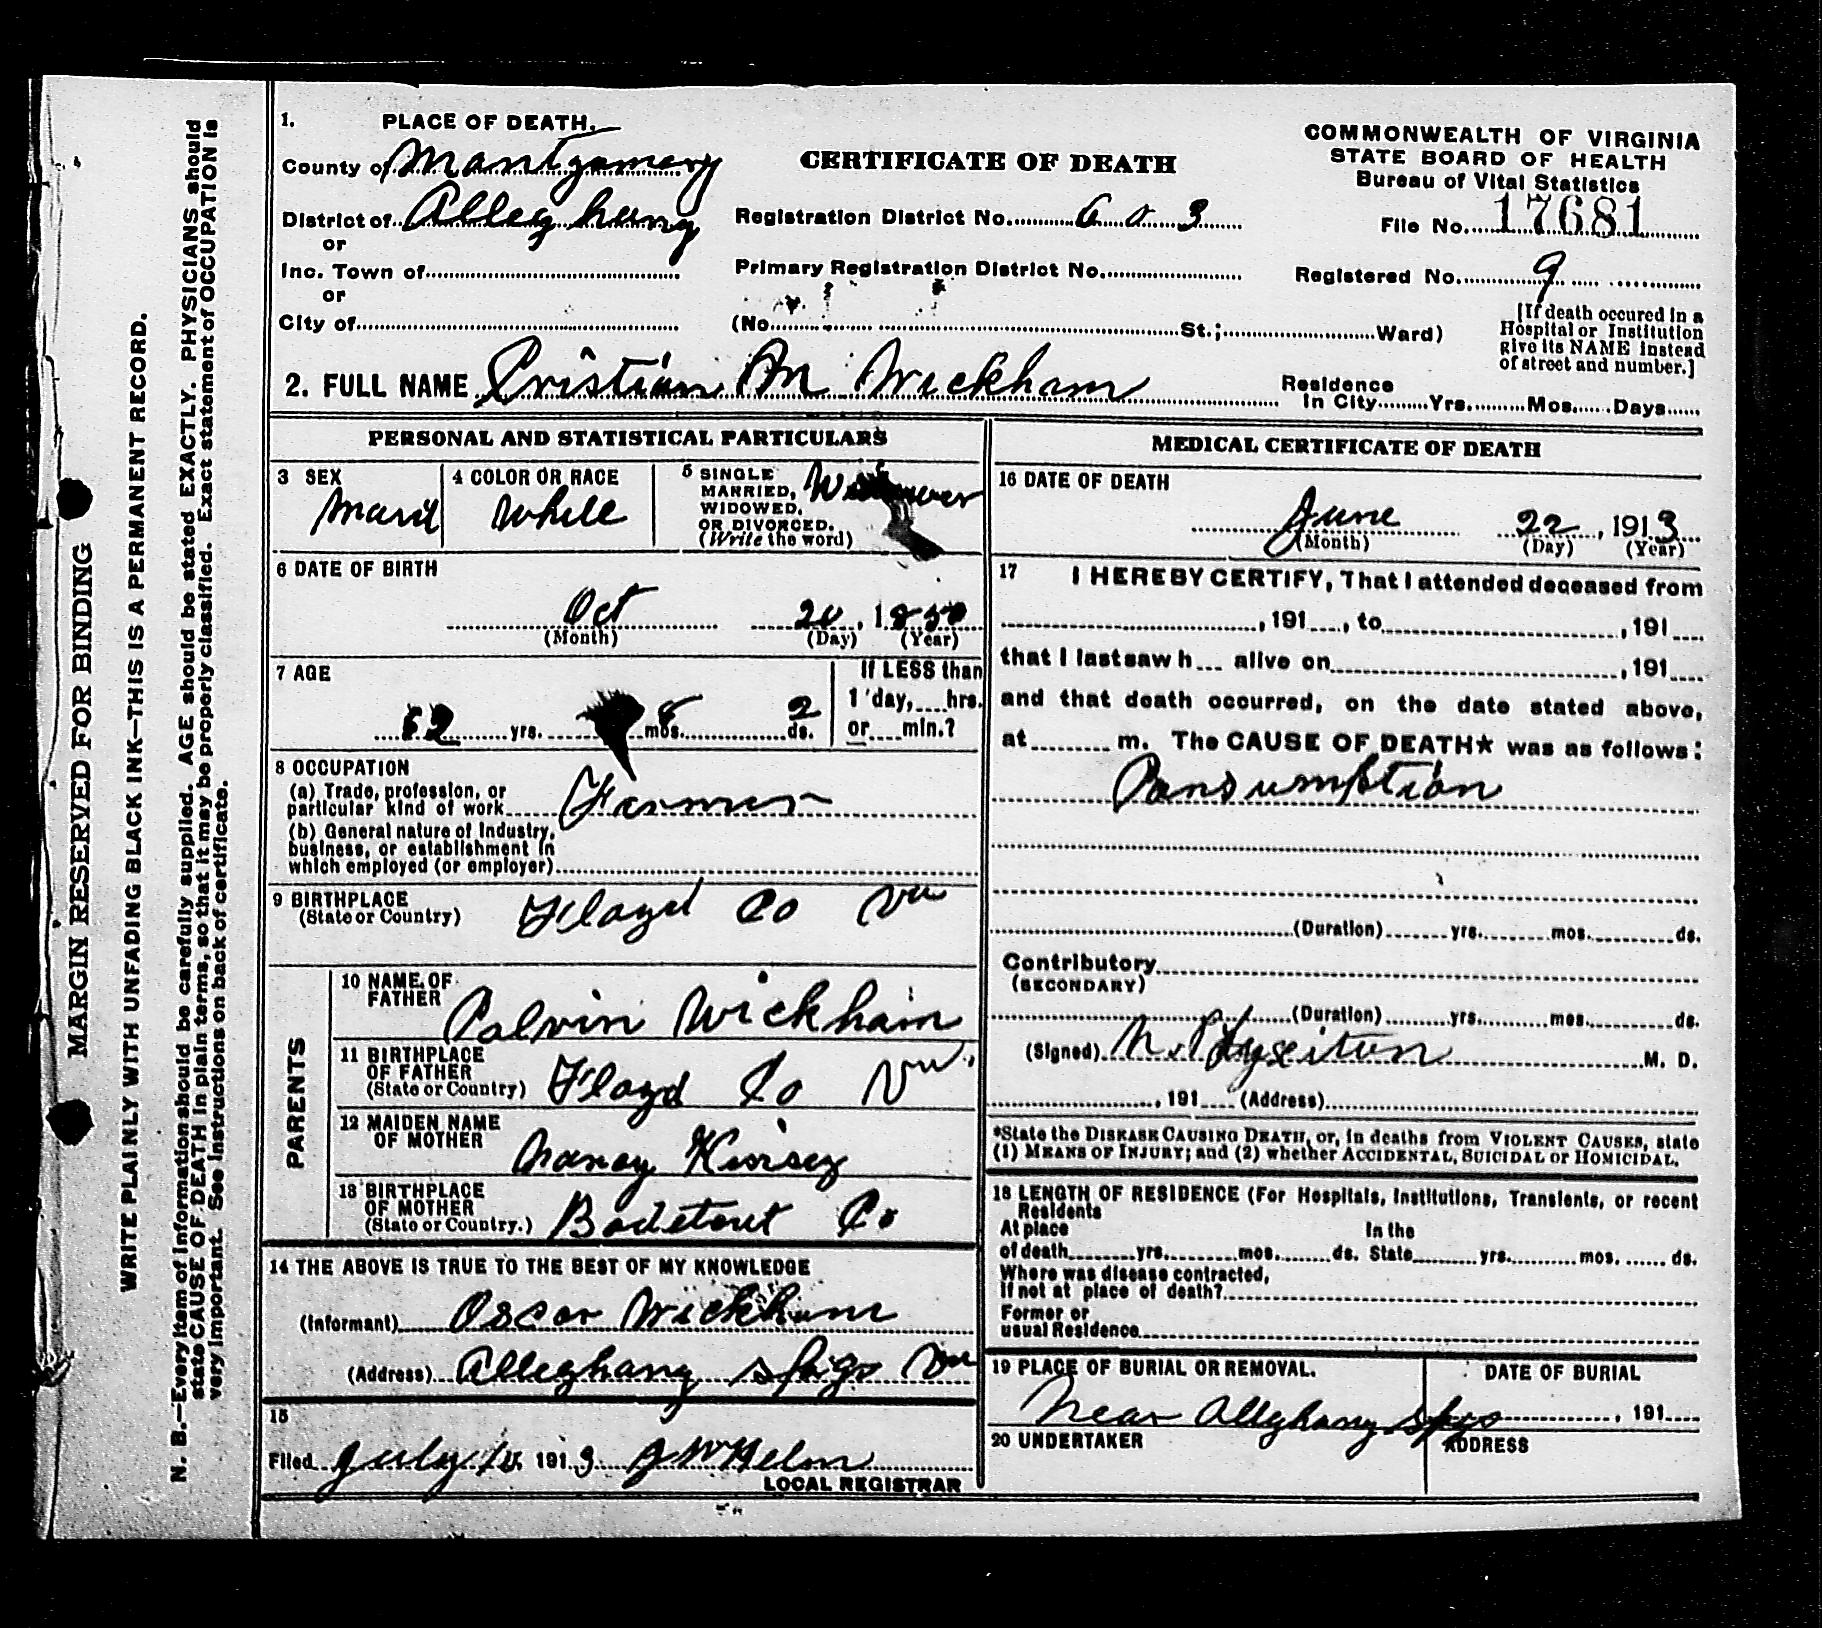 1. PLACE OF DEATH.
County of Mantgomery
District of Alleghany
or
Inc. Town of
or
City of
CERTIFICATE OF DEATH
Registration District No. 603
Primary Registration District No.
(No. St.; Ward)
COMMONWEALTH OF VIRGINIA
STATE BOARD OF HEALTH
Bureau of Vital Statistics
File No. 17681
Registered No. 9
[If death occured in a
Hospital or Institution
give its NAME instead
of street and number.]
2. FULL NAME Cristian M Wickham
Residence
In City Yrs. Mos. Days
PERSONAL AND STATISTICAL PARTICULARS
3 SEX
4 COLOR OR RACE
White
5 SINGLE
MARRIED,
WIDOWED,
OR DIVORCED.
(Write the word)
6 DATE OF BIRTH
Oct 20, 1850
(Month) (Day) (Year)
7 AGE
62 yrs. 8 mos. 2 ds.
If LESS than
1 day, hrs.
or min.?
8 OCCUPATION
(a) Trade, profession, or
particular kind of work Farmer
(b) General nature of Industry,
business, or establishment in
which employed (or employer)
9 BIRTHPLACE
(State or Country) Floyd Co Va
PARENTS
10 NAME OF
FATHER Calvin Wickham
11 BIRTHPLACE
OF FATHER
(State or Country) Floyd Co Va
12 MAIDEN NAME
OF MOTHER Nancy Kinsey
13 BIRTHPLACE
OF MOTHER
(State or Country.) Bodetout Co
14 THE ABOVE IS TRUE TO THE BEST OF MY KNOWLEDGE
(Informant) Oscar Wickham
(Address) Alleghany Spgs Va
15
Filed July 10 1913 J W Helm
LOCAL REGISTRAR
MEDICAL CERTIFICATE OF DEATH
16 DATE OF DEATH
June 22, 1913
(Month) (Day) (Year)
17 I HEREBY CERTIFY, That I attended deceased from
, 191 , to , 191
that I last saw h alive on , 191
and that death occurred, on the date stated above,
at m. The CAUSE OF DEATH* was as follows:
Consumption
(Duration) yrs. mos. ds.
Contributory
(SECONDARY)
(Duration) yrs. mos. ds.
(Signed) M. D.
, 191 (Address)
*State the DISEASE CAUSING DEATH, or, in deaths from VIOLENT CAUSES, state
(1) MEANS OF INJURY; and (2) whether ACCIDENTAL, SUICIDAL or HOMICIDAL.
18 LENGTH OF RESIDENCE (For Hospitals, Institutions, Transients, or recent
Residents
At place In the
of death yrs. mos. ds. State yrs. mos. ds.
Where was disease contracted,
If not at place of death?
Former or
usual Residence
19 PLACE OF BURIAL OR REMOVAL. DATE OF BURIAL
Near Alleghany Spgs , 191
20 UNDERTAKER ADDRESS
MARGIN RESERVED FOR BINDING
WRITE PLAINLY WITH UNFADING BLACK INK—THIS IS A PERMANENT RECORD.
N. B.—Every item of information should be carefully supplied. AGE should be stated EXACTLY. PHYSICIANS should
state CAUSE OF DEATH in plain terms, so that it may be properly classified. Exact statement of OCCUPATION is
very important. See instructions on back of certificate.